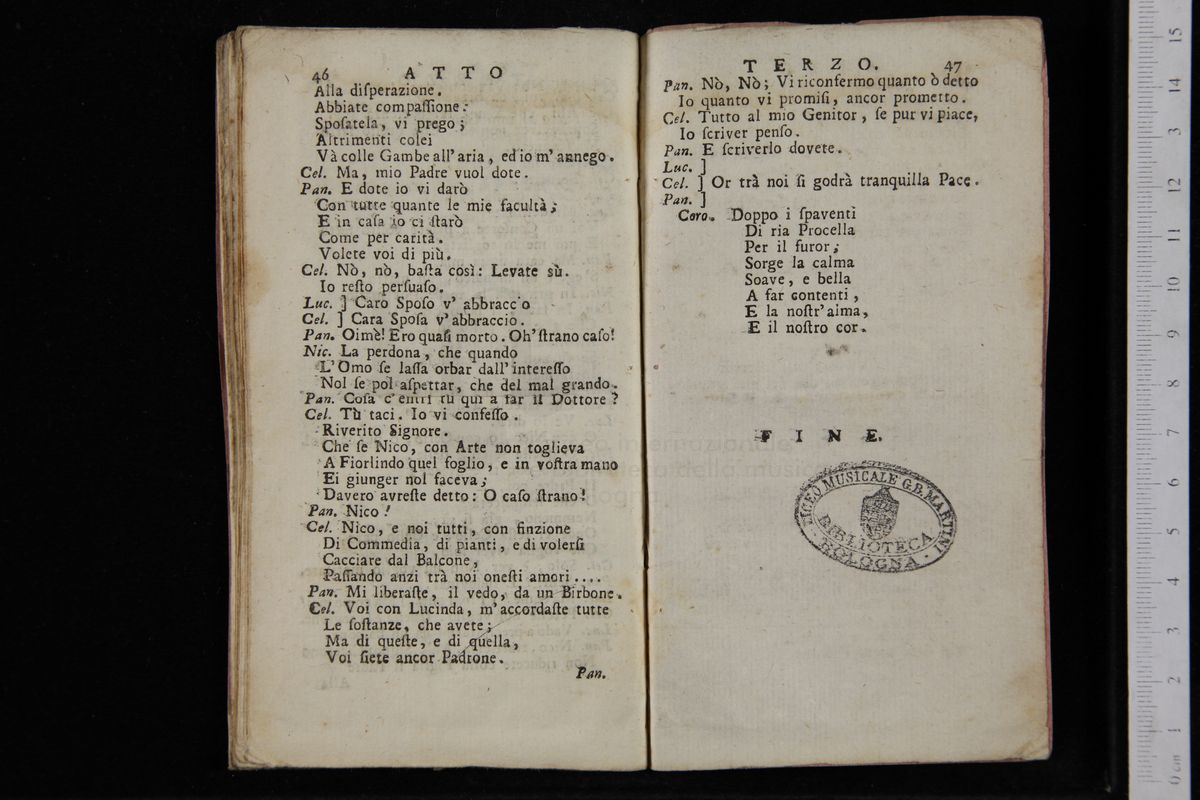 46 ATTO
Alla diſperazione.
Abbiate compaſſione:
Spoſatela, vi prego;
Altrimenti colei
Và colle Gambe all' aria, ed io m' annego.
Cel. Ma, mio Padre vuol dote.
Pan. E dote io vi darò
Con tutte quante le mie facultà;
E in caſa io ci ſtarò
Come per carità.
Volete voi di più.
Cel. Nò, nò, baſta così: Levate sù.
Io reſto perſuaſo.
Luc. ] Caro Spoſo v' abbracc'o
Cel. ] Cara Spoſa v' abbraccio.
Pan. Oimè! Ero quaſi morto. Oh' ſtrano caſo!
Nic. La perdona, che quando
L' Omo ſe laſſa orbar dall' intereſſo
Nol ſe pol aſpettar, che del mal grando.
Pan. Coſa c' entri tu quì a far il Dottore?
Cel. Tù taci. Io vi confeſſo.
Riverito Signore.
Che ſe Nico, con Arte non toglieva
A Fiorlindo quel foglio, e in voſtra mano
Ei giunger nol faceva;
Davero avreſte detto: O caſo ſtrano!
Pan. Nico!
Cel. Nico, e noi tutti, con finzione
Di Commedia, di pianti, e di volerſi
Cacciare dal Balcone,
Paſſando anzi trà noi oneſti amori....
Pan. Mi liberaſte, il vedo, da un Birbone.
Cel. Voi con Lucinda, m' accordaſte tutte
Le ſoſtanze, che avete;
Ma di queſte, e di quella,
Voi ſiete ancor Padrone.
Pan.
TERZO. 47
Pan. Nò, Nò; Vi riconfermo quanto ò detto
Io quanto vi promiſi, ancor prometto.
Cel. Tutto al mio Genitor, ſe pur vi piace,
Io ſcriver penſo.
Pan. E ſcriverlo dovete.
Luc. ]
Cel. ] Or trà noi ſi godrà tranquilla Pace.
Pan. ]
Coro. Doppo i ſpaventi
Di ria Procella
Per il furor;
Sorge la calma
Soave, e bella
A far contenti,
E la noſtr'alma,
E il noſtro cor.
FINE.
LICEO MUSICALE G.B. MARTINI
BIBLIOTECA
BOLOGNA